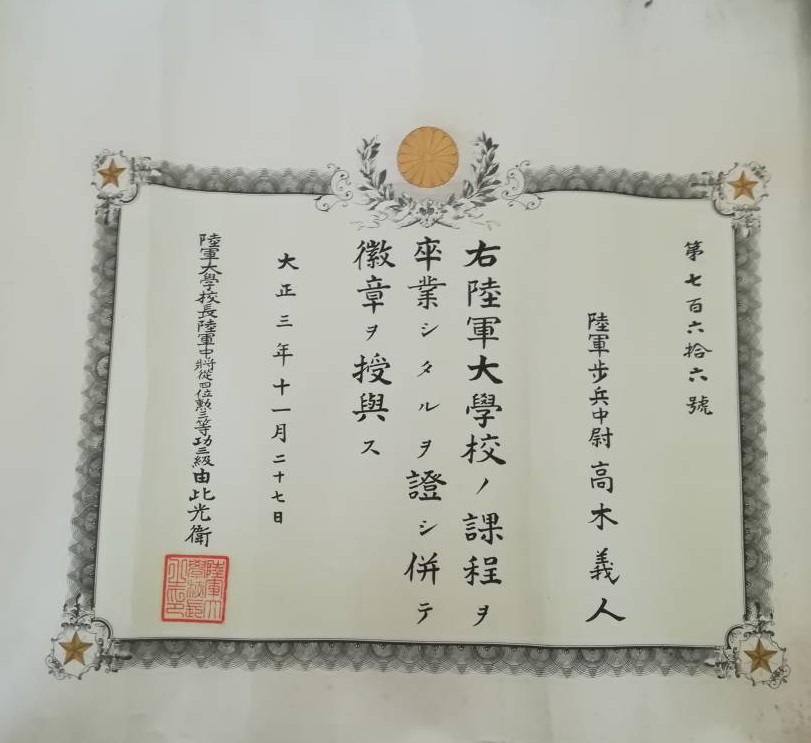 第七百六拾六號
陸軍歩兵中尉 高木義人
右陸軍大學校ノ課程ヲ
卒業シタルヲ證シ併テ
徽章ヲ授與ス
大正三年十一月二十七日
陸軍大學校長陸軍中將從四位勲三等功三級由比光衛
陸軍大
學校長
之印